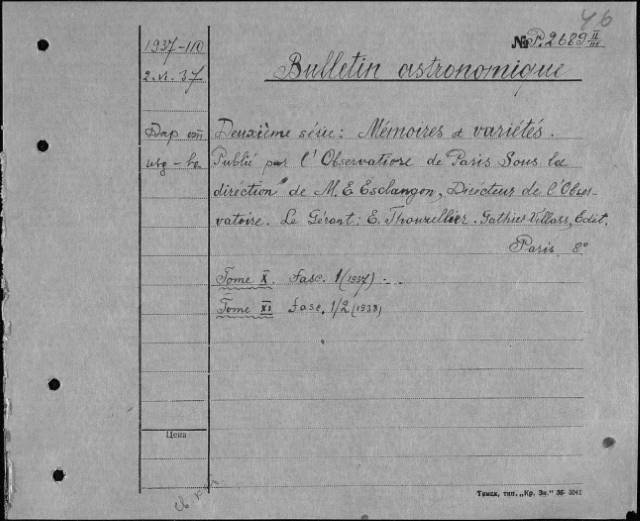 46
№ P. 2689 II/III
1937-110
2.VI.37
Bulletin astronomique
Дар
изд-ва
Deuxième série: Mémoires et variétés.
Publié par l'Observatiore de Paris Sous la
direction de M. E Esclangon, Directeur de l'Obser-
vatoire. Le Gérant: E. Thouzellier. Gathier Villars, Edit.
Paris 8°
Tome X. Fasc. 1 (1937)
Tome XI Fasc. 1/2 (1938)
Цена
Томск, тип. „Кр. Зн."